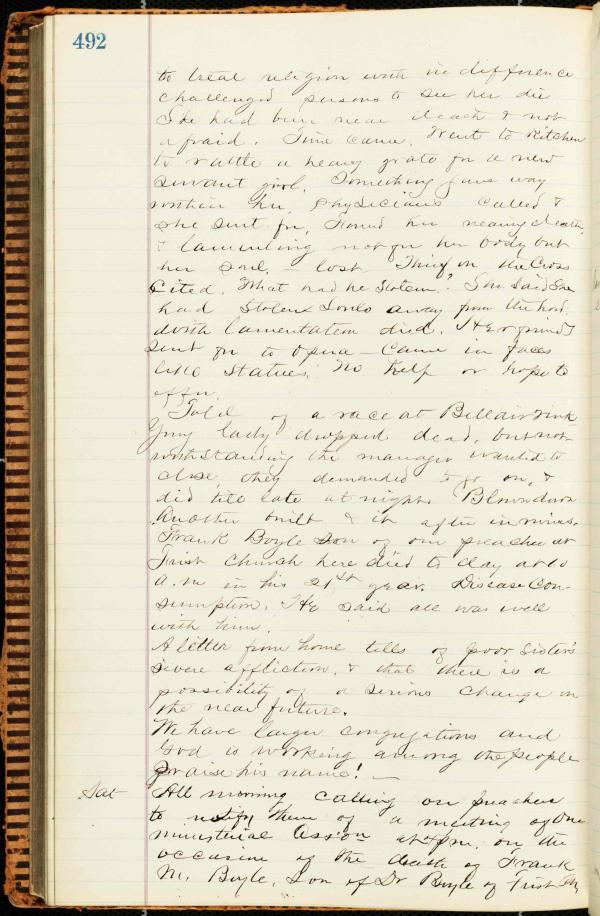 492
to treat religion with indifference
challenged persons to see her die
She had been near death & not
afraid. Time came. Went to Kitchen
to rattle a heavy grate for a new
servant girl. Something gave way
within her, Physicians Called &
she sent for, Found her nearing death,
& lamenting not for her body but
her soul, – lost. Thief on the Cross
Cited. "What had he Stolen?" She said She
had Stolen Souls away from the Lord.
With lamentation died. Her friends
sent for to Opera – Came in faces
like Statues. No help or hope to
offer.
Told of a race at Bellair rink
Young lady dropped dead, but not
withstanding the manager wanted to
close, they demanded to go on, &
did till late at night. Blown down
Another built & it after in ruins.
Frank Boyle son of our preacher at
First Church here died to day at 10
a.m in his 21st year. Disease Con-
sumption. He said all was well
with him.
A letter from home tells of poor Sister's
severe affliction, & that there is a
possibility of a serious change in
the near future.
We have larger congregations and
God is working among the people
Praise his name! –
Sat All morning calling on preachers
to notify them of a meeting of the
ministerial Ass'on at 4 pm. on the
occasion of the death of Frank
M. Boyle, Son of Dr Boyle of First